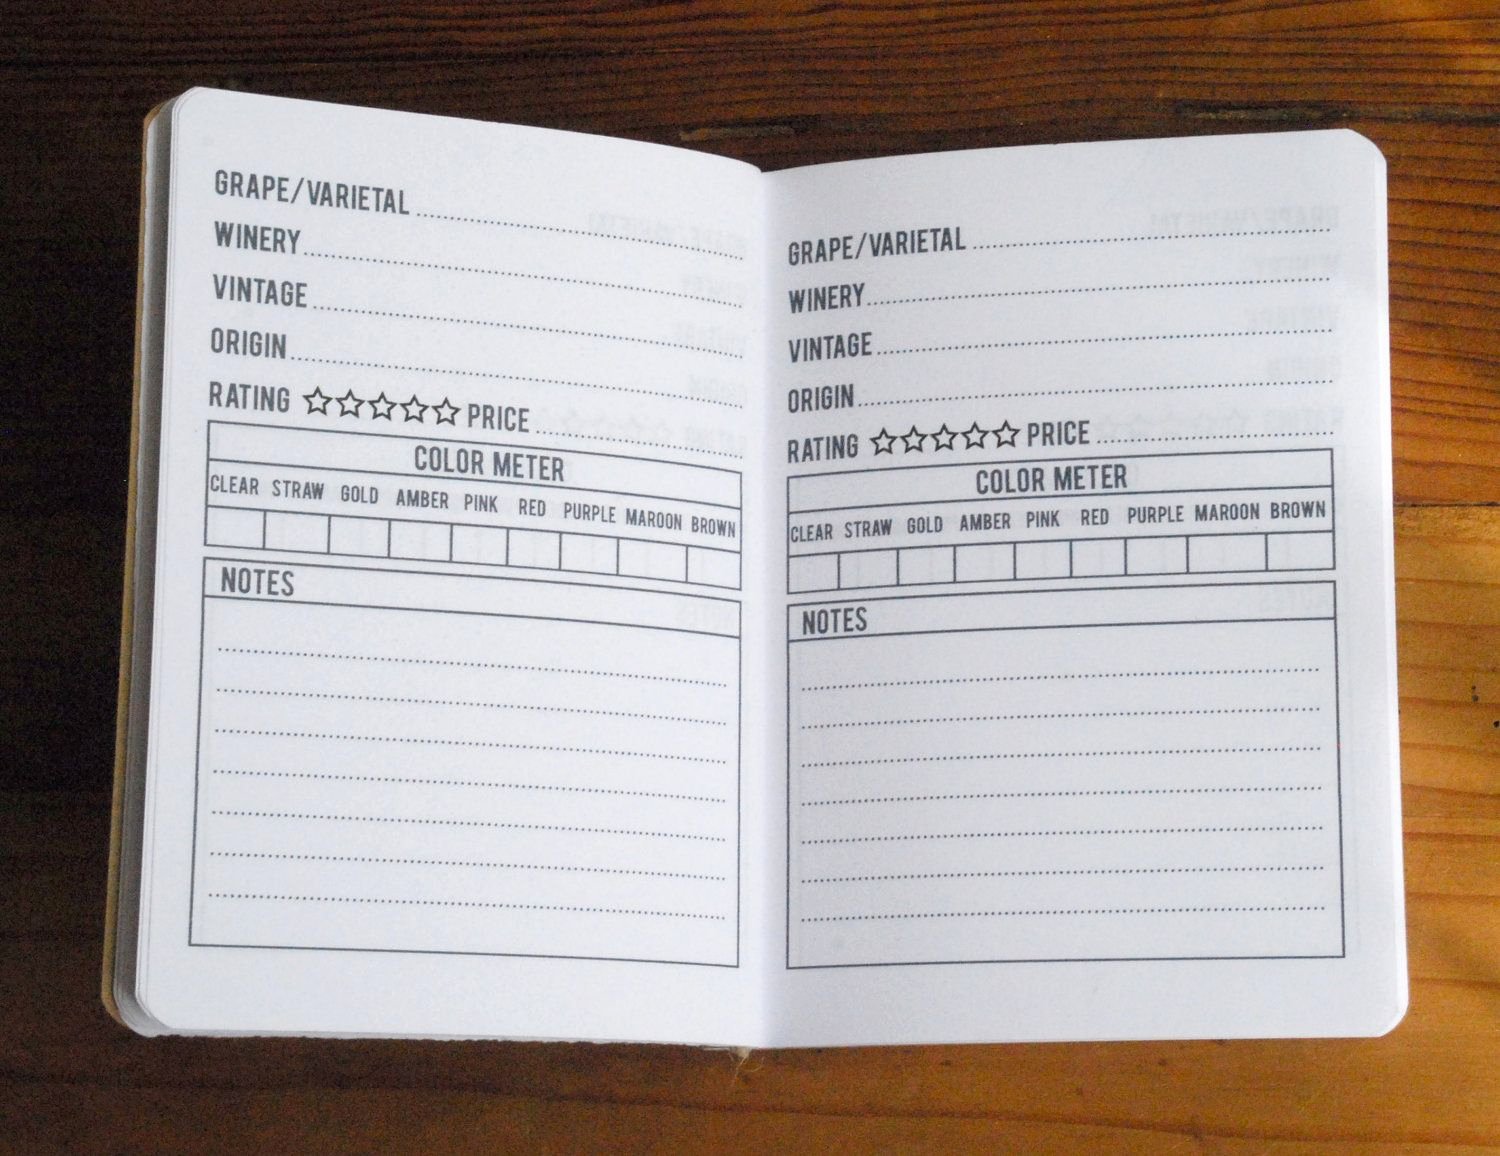 GRAPE/VARIETAL
WINERY
VINTAGE
ORIGIN
RATING PRICE
COLOR METER
CLEAR STRAW GOLD AMBER PINK RED PURPLE MAROON BROWN
NOTES
GRAPE/VARIETAL
WINERY
VINTAGE
ORIGIN
RATING PRICE
COLOR METER
CLEAR STRAW GOLD AMBER PINK RED PURPLE MAROON BROWN
NOTES